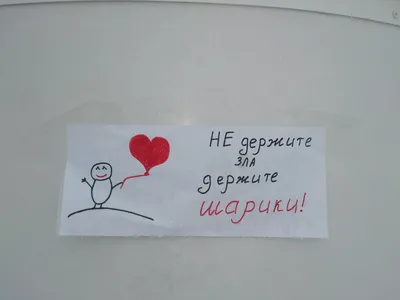 НЕ держите
зла
держите
шарики!